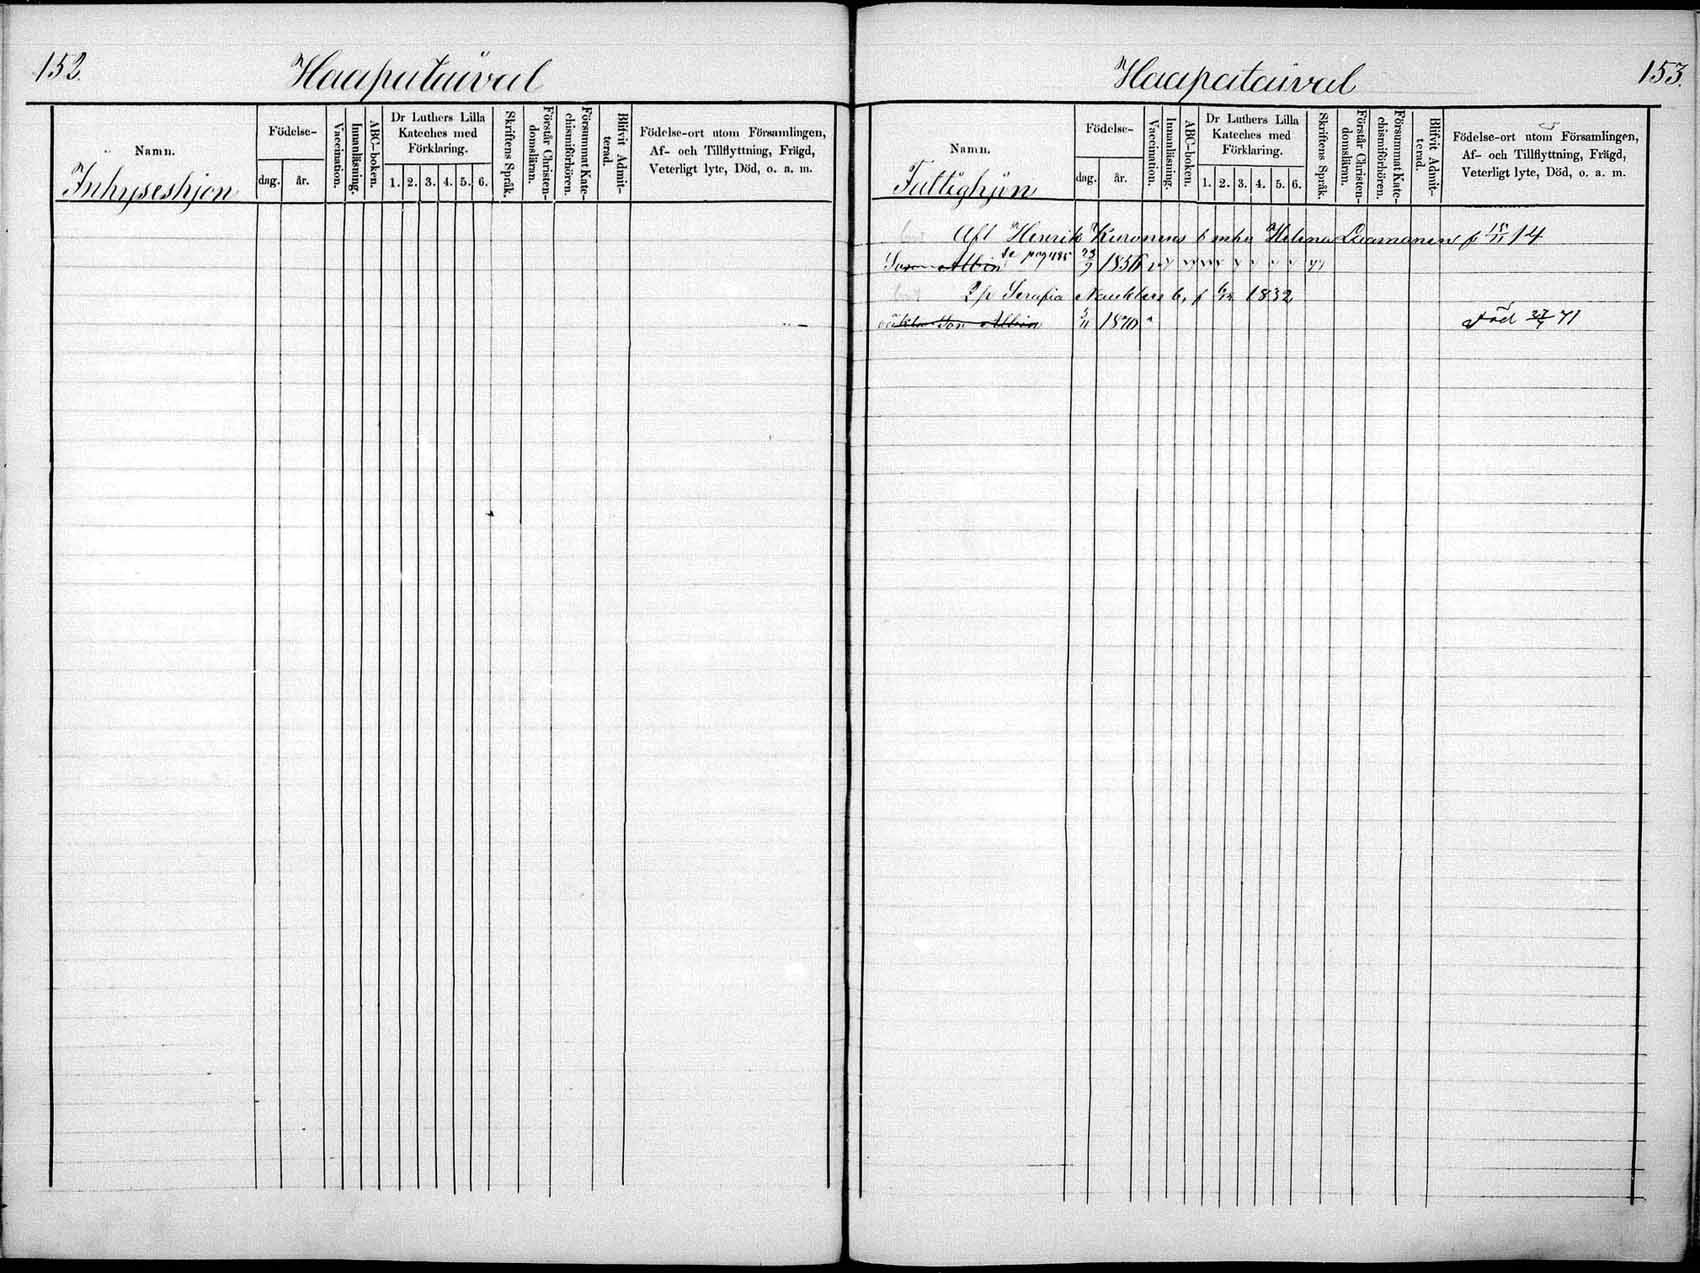 152.
Haapataival
Namn.
Födelse-
dag.
år.
Vaccination.
Innanläsning.
ABC-boken.
Dr Luthers Lilla
Kateches med
Förklaring.
1. 2. 3. 4. 5. 6.
Skriftens Språk.
Förstår Christen-
domsläran.
Försummat Kate-
chismiförhören.
Blifvit Admit-
terad.
Födelse-ort utom Församlingen,
Af- och Tillflyttning, Frägd,
Veterligt lyte, Död, o. a. m.
Inhyseshjon
153.
Haapataival
Namn.
Födelse-
dag.
år.
Vaccination.
Innanläsning.
ABC-boken.
Dr Luthers Lilla
Kateches med
Förklaring.
1. 2. 3. 4. 5. 6.
Skriftens Språk.
Förstår Christen-
domsläran.
Försummat Kate-
chismiförhören.
Blifvit Admit-
terad.
Födelse-ort utom Församlingen,
Af- och Tillflyttning, Frägd,
Veterligt lyte, Död, o. a. m.
Fattighjon
Afl Henrik Kuronens enka Helena Laamanen f 14
Son Albin Se pag 185 1856
Serafia f 1832
Son Albin 1870 Död 71